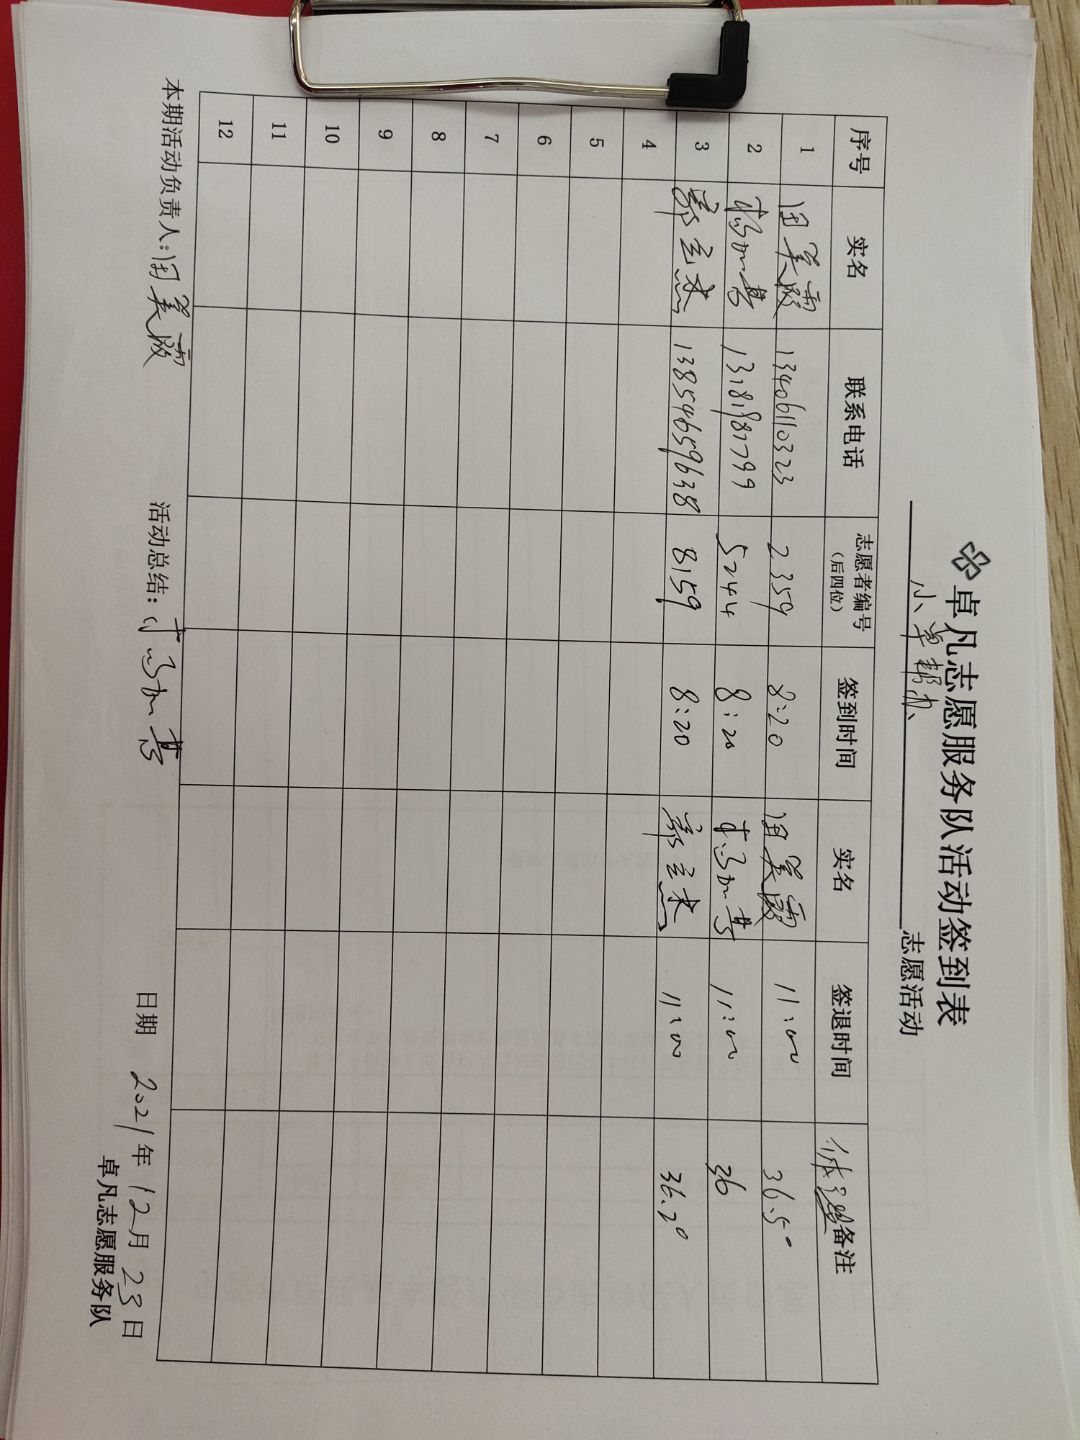 卓凡志愿服务队活动签到表
小卓帮办 志愿活动
序号 实名 联系电话 志愿者编号(后四位) 签到时间 实名 签退时间 体温 备注
1 田美霞 13406110323 2359 8:20 田美霞 11:00 36.5°
2 杨加营 13181981799 5244 8:20 杨加营 11:00 36
3 郭立杰 13854659638 8159 8:20 郭立杰 11:00 36.2°
4
5
6
7
8
9
10
11
12
本期活动负责人:田美霞 活动总结:杨加营 日期 2021年12月23日
卓凡志愿服务队